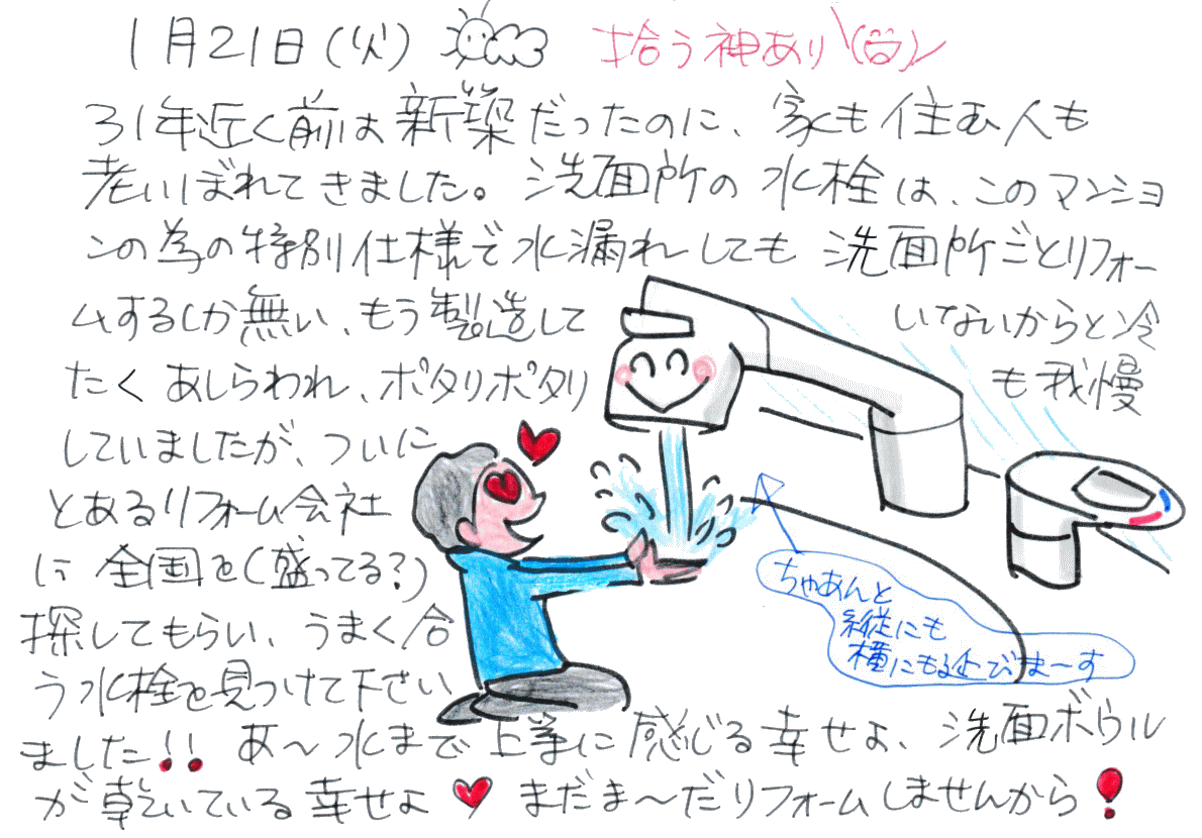 1月21日(火) 拾う神あり\(^o^)/
31年近く前は新築だったのに、家も住む人も
老いぼれてきました。洗面所の水栓は、このマンショ
ンの為の特別仕様で水漏れしても洗面所ごとリフォー
ムするしか無い、もう製造して いないからと冷
たくあしらわれ、ポタリポタリ も我慢
していましたが、ついに
とあるリフォーム会社
に全国を(盛ってる?)
探してもらい、うまく合
う水栓を見つけて下さい
ました!! あ〜水まで上等に感じる幸せよ、洗面ボウル
が乾いている幸せよ♥まだま〜だリフォームしませんから!
ちゃあんと
縦にも
横にも飛びまーす